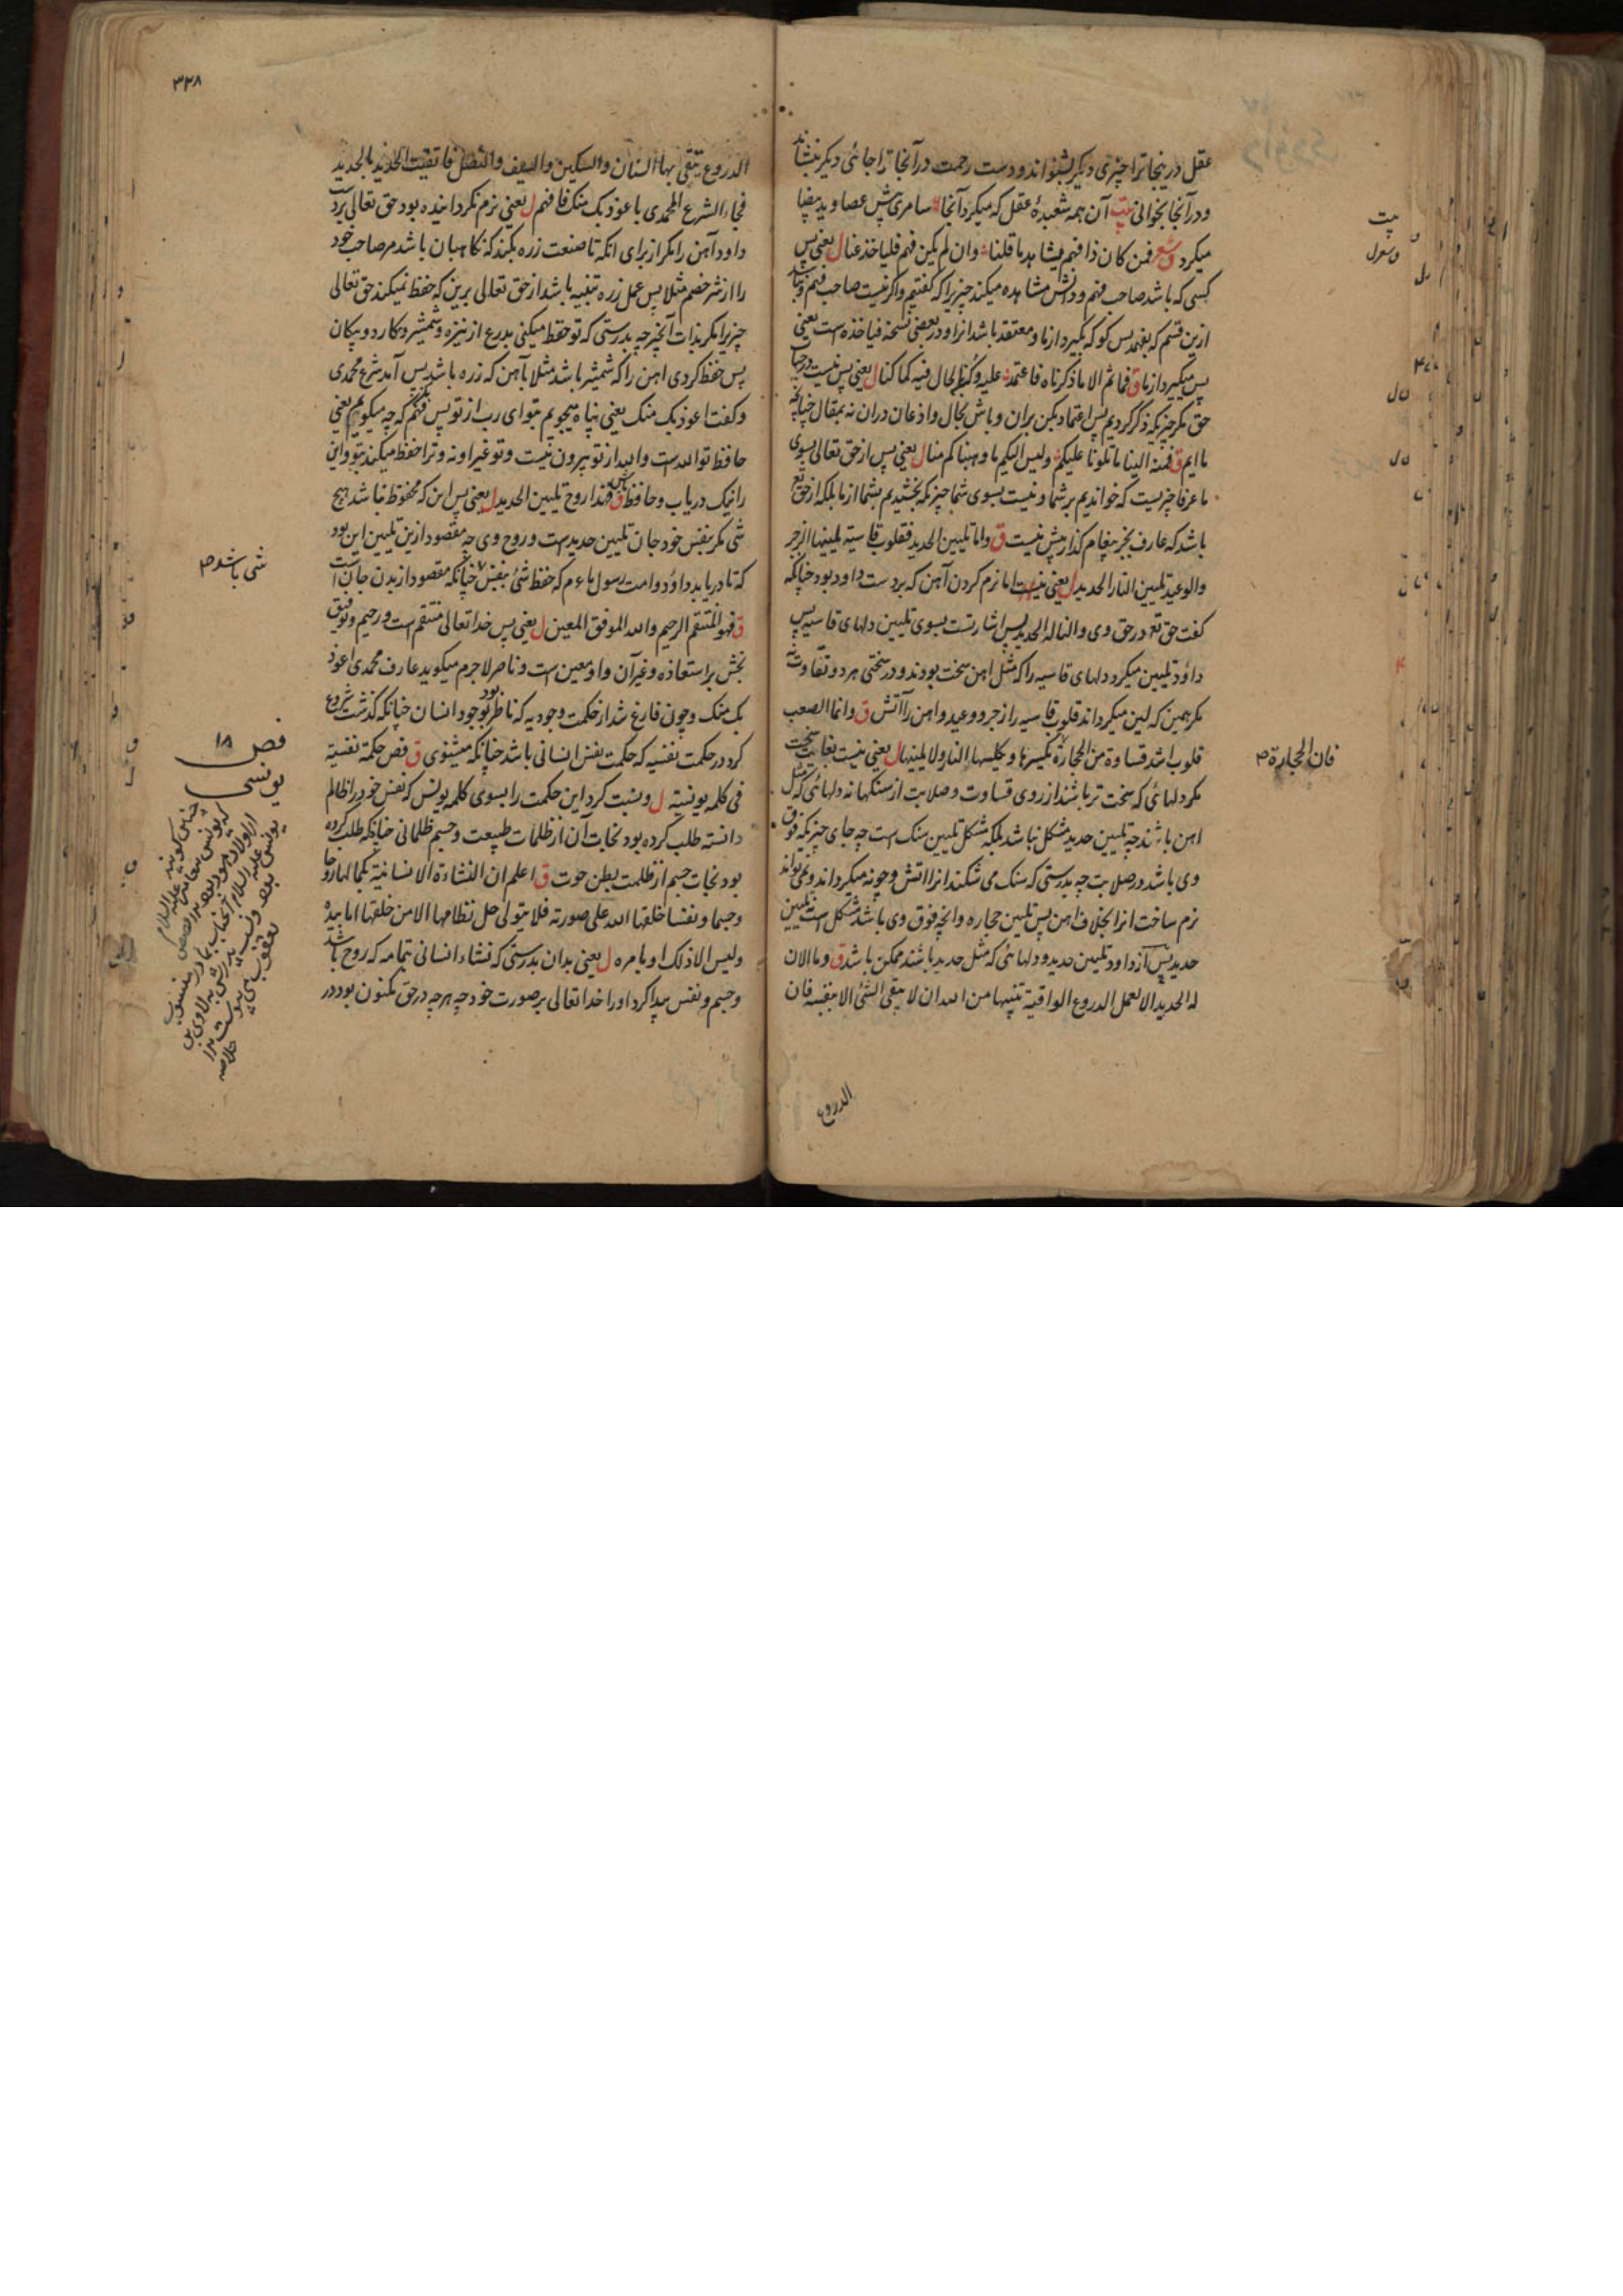 عقل درینجا ترا چیزی دیگر بشنواند و دست رحمت در آنجا ترا جائی دیگر بنشاند
و در آنجا بخوانی بیت آن همه شعبدهٔ عقل که میکرد آنجا سامری پیش عصا و ید بیضا
میکرد فمن کان ذا فهم یشاهد ما قلنا وان لم یکن فهم فلیاخذ عنا ل یعنی پس
کسی که باشد صاحب فهم و دانش مشاهده میکند چیزیرا که گفتیم و اگر نیست صاحب فهم
ازین قسم که بفهمد پس کو که بگیرد از ما و معتقد باشد انرا و در بعضی نسخه فیاخذه است یعنی
پس میگیرد از ما ق فما ثم الا ما ذکرناه فاعتمد علیه وکن بالحال فیه کما کنا ل یعنی پس نیست
حق مگر چیزیکه ذکر کردیم پس اعتماد بکن بران و باش بحال و اذعان دران نه بمقال چنانچه
ما ایم ق فمنه الینا ما تلونا علیکم ولیس الیکم ما وهبناکم منا ل یعنی پس از حق تعالی بسوی
ما عرفا چیزیست که خواندیم بر شما و نیست بسوی شما چیزیکه بخشیدیم بشما از ما بلکه از حق تع
باشد که عارف بجز پیغام گذار بیش نیست ق واما تلیین الحدید فقلوب قاسیة یلینها الزجر
والوعید تلیین النار الحدید ل یعنی اما نرم کردن آهن که بر دست داود بود چنانکه
گفت حق تع در حق وی والنا له الحدید پس اشارتست بسوی تلیین دلهای قاسیه پس
داود تلیین میکرد دلهای قاسیه را که مثل اهن سخت بودند و در سختی هر دو تفاوت نه
مگر همین که لین میکرداند قلوب قاسیه را زجر و وعید و اهن را آتش ق وانما الصعب
قلوب اشد قساوة من الحجارة یکسرها ویکلسها النار ولا یلینها ل یعنی نیست بغایت سخت
مگر دلهائی که سخت تر باشند از روی قساوت و صلابت از سنگها نه دلهائی که مثل
اهن باشند چه تلیین حدید مشکل نباشد بلکه مشکل تلیین سنک است چه جای چیزیکه فوق
وی باشد در صلابت چه بدرستی که سنک می شکند انرا اتش و چونه میکرداند و نمی تواند
نرم ساخت انرا بخلاف اهن پس تلیین حجاره و انچه فوق وی باشد مشکل است تلیین
حدید پس از داود تلیین حدید و دلهائی که مثل حدید باشند ممکن باشد ق وما الان
له الحدید الا لعمل الدروع الواقیة تنبیها من الله ان لا یتقی الشئ الا بنفسه فان
الدروع
بیت
فان الحجارة ص
۳۳۸
الدروع یتقی بها السنان والسکین والسیف والنصل فاتقیت الحدید بالحدید
فجاء الشرع المحمدی با عوذ بک منک فافهم ل یعنی نرم نکردانیده بود حق تعالی برای
داود آهن را مگر از برای انکه تا صنعت زره بکند که نگاهبان باشد مر صاحب خود
را از شر خصم مثلا پس عمل زره تنبیه باشد از حق تعالی برین که حفظ نمیکند حق تعالی
چیزیرا مگر بذات آنچیز چه بدرستی که تو حفظ میکنی بدرع از نیزه و شمشیر و کارد و پیکان
پس حفظ کردی اهن را که شمشیر باشد مثلا بآهن که زره باشد پس آمد شرع محمدی
و گفت اعوذ بک منک یعنی پناه میجویم بتو ای رب از تو پس بفهم که چه میگویم یعنی
حافظ تو الله است و العبد از تو بیرون نیست و تو غیر او نه و ترا حفظ میکند بتو و این
را نیک دریاب و حافظ باش ق فهذا روح تلیین الحدید ل یعنی پس این که محفوظ نباشد هیچ
شی مگر بنفس خود جان تلیین حدید است و روح وی چه مقصود ازین تلیین این بود
که تا دریابد داود و امت رسول ما ع م که حفظ شئ بنفس چنانکه مقصود از بدن جان است
ق فهو المنتقم الرحیم والله الموفق المعین ل یعنی پس خدا تعالی منتقم است و رحیم و توفیق
بخش بر استعاذه و غیر آن و او معین است و ناصر لاجرم میگوید عارف محمدی اعوذ
بک منک و چون فارغ شد از حکمت وجودیه که ناظر بود بوجود انسان چنانکه گذشت شروع
کرد در حکمت نفسیه که حکمت نفس انسانی باشد چنانکه میشنوی ق فص حکمة نفسیة
فی کلمه یونسیة ل و نسبت کرد این حکمت را بسوی کلمه یونس که نفس خود را ظالم
دانسته طلب کرده بود نجات آن از ظلمات طبیعت و جسم ظلمانی چنانکه طلب کرده
بود نجات جسم از ظلمت بطن حوت ق اعلم ان النشاءة الانسانیة بکمالها روحا
وجسما ونفسا خلقها الله علی صورته فلا یتولی حل نظامها الا من خلقها اما بیده
ولیس الا ذلک او بامره ل یعنی بدان بدرستی که نشاء انسانی بتمامه که روح باشد
و جسم و نفس پیدا کرد او را خدا تعالی بر صورت خود چه هر چه در حق مکنون بود در
شی باشد ص
فص ۱۸
یونسی